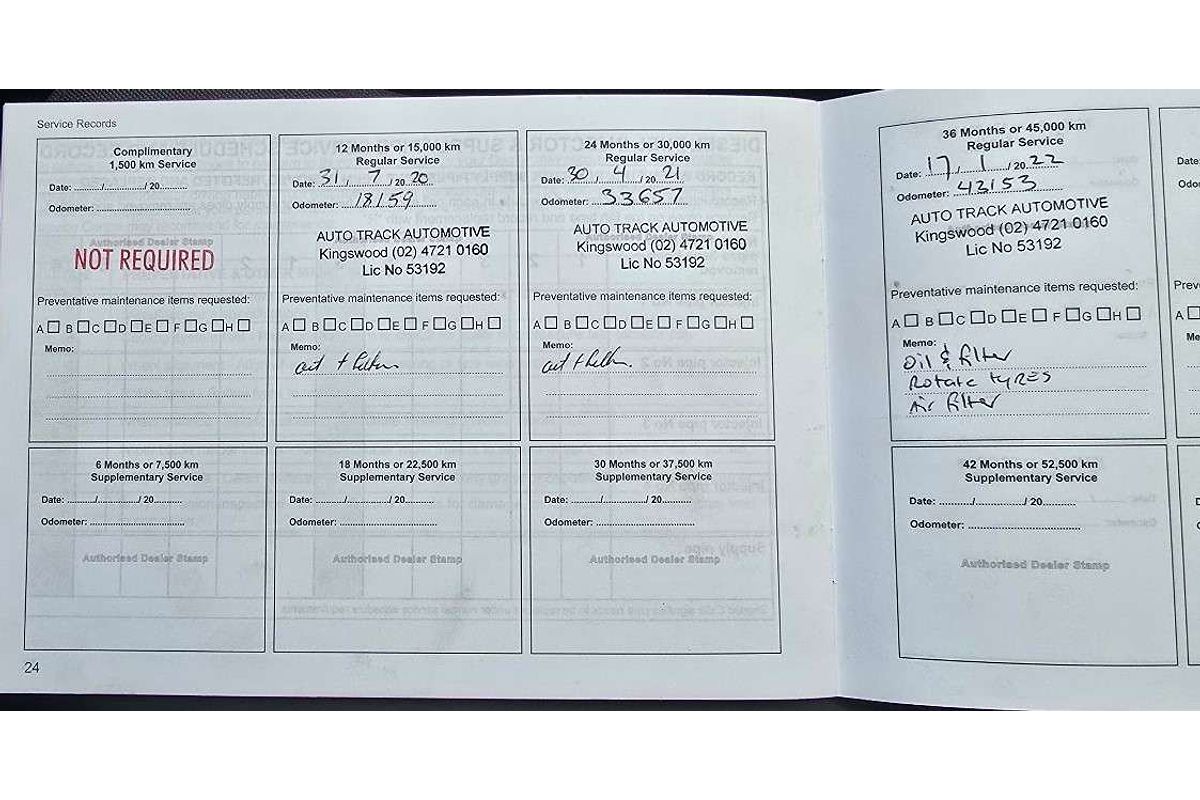 Service Records
Complimentary
1,500 km Service
Date: ......../............../ 20.........
Odometer: ................................
Authorised Dealer Stamp
NOT REQUIRED
Preventative maintenance items requested:
A B C D E F G H
Memo:
12 Months or 15,000 km
Regular Service
Date: 31 / 7 / 20 20
Odometer: 18159
AUTO TRACK AUTOMOTIVE
Kingswood (02) 4721 0160
Lic No 53192
Preventative maintenance items requested:
A B C D E F G H
Memo:
24 Months or 30,000 km
Regular Service
Date: 30 / 4 / 20 21
Odometer: 33657
AUTO TRACK AUTOMOTIVE
Kingswood (02) 4721 0160
Lic No 53192
Preventative maintenance items requested:
A B C D E F G H
Memo:
36 Months or 45,000 km
Regular Service
Date: 17 / 1 / 20 22
Odometer: 42153
AUTO TRACK AUTOMOTIVE
Kingswood (02) 4721 0160
Lic No 53192
Preventative maintenance items requested:
A B C D E F G H
Memo:
oil & filter
Rotate TYRES
Air filter
6 Months or 7,500 km
Supplementary Service
Date: ........./............../ 20.........
Odometer: ................................
Authorised Dealer Stamp
18 Months or 22,500 km
Supplementary Service
Date: ........./............../ 20.........
Odometer: ................................
Authorised Dealer Stamp
30 Months or 37,500 km
Supplementary Service
Date: ........./............../ 20.........
Odometer: ................................
Authorised Dealer Stamp
42 Months or 52,500 km
Supplementary Service
Date: ........./............../ 20.........
Odometer: ................................
Authorised Dealer Stamp
24